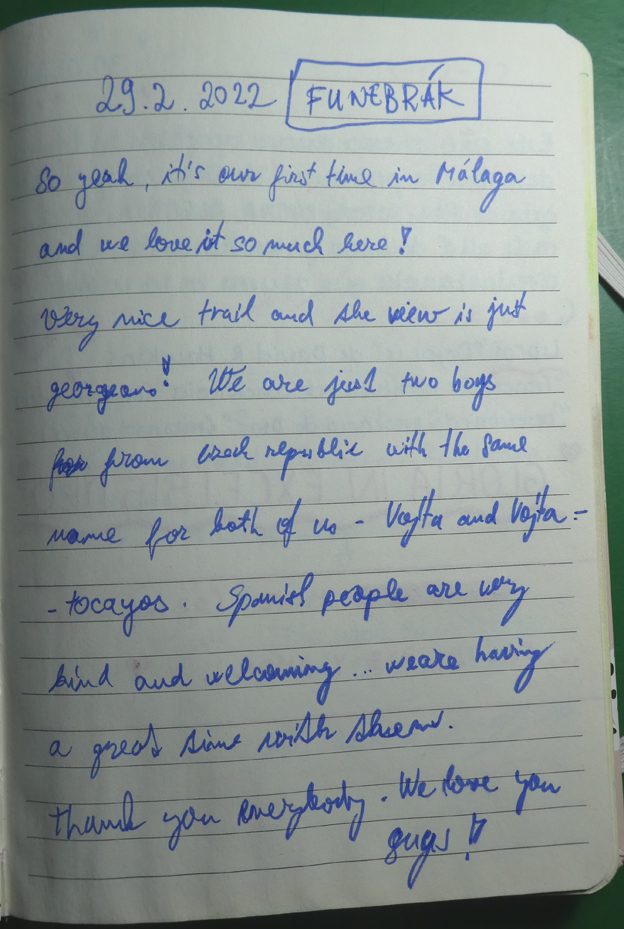 29.2.2022 FUNEBRÁK
So yeah, it's our first time in Málaga
and we love it so much here!
Very nice trail and the view is just
georgeous! We are just two boys
from czech republic with the same
name for both of us - Vojta and Vojta =
- tocayos. Spanish people are very
kind and welcoming... we are having
a great time with them.
Thank you everybody. We love you
guys!!